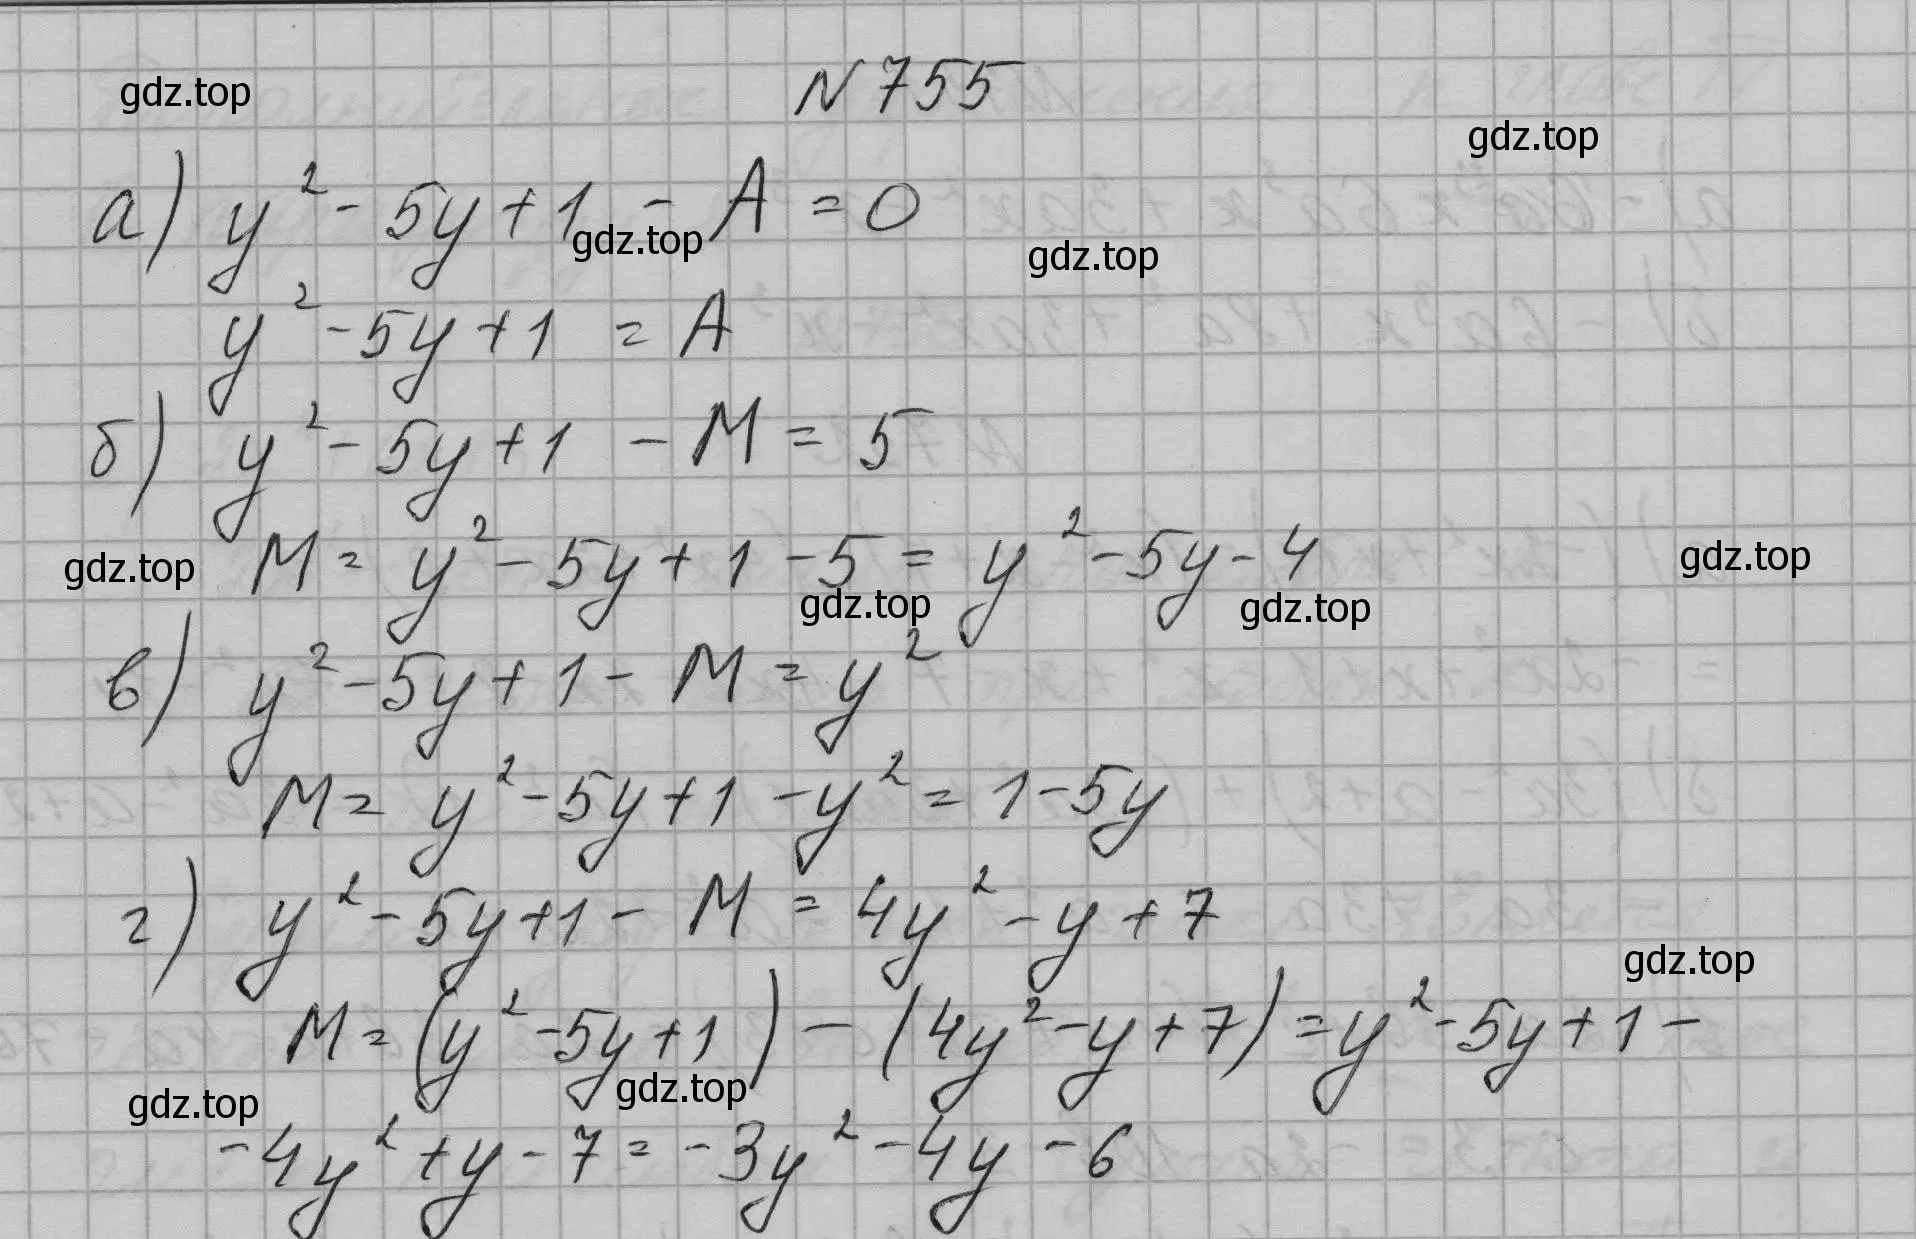 N 755
gdz.top
gdz.top
а) y² - 5y + 1 - A = 0
gdz.top
gdz.top
y² - 5y + 1 = A
б) y² - 5y + 1 - M = 5
M = y² - 5y + 1 - 5 = y² - 5y - 4
gdz.top
gdz.top
gdz.top
gdz.top
в) y² - 5y + 1 - M = y²
M = y² - 5y + 1 - y² = 1 - 5y
г) y² - 5y + 1 - M = 4y² - y + 7
gdz.top
M = (y² - 5y + 1) - (4y² - y + 7) = y² - 5y + 1 -
gdz.top
gdz.top
- 4y² + y - 7 = - 3y² - 4y - 6